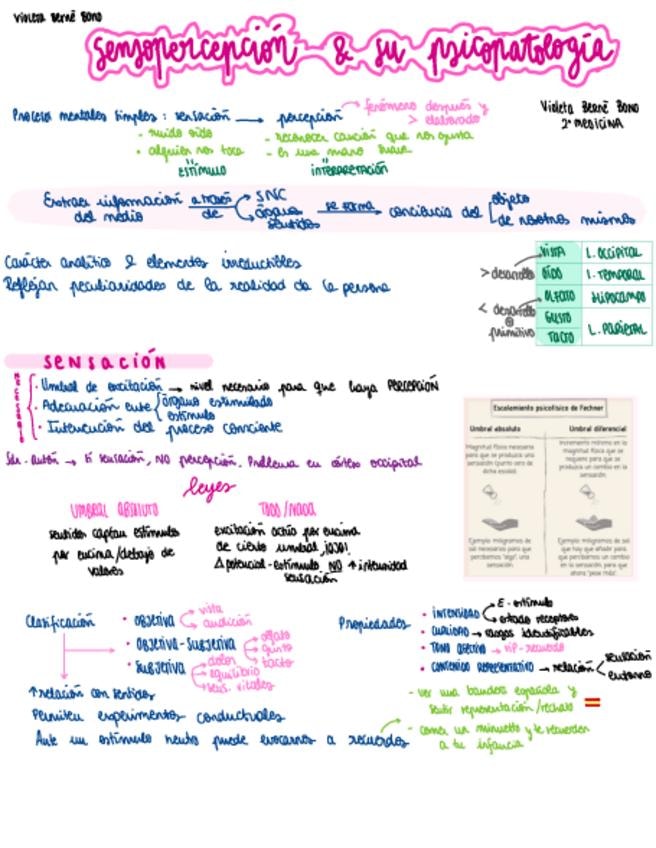 Violeta Berné Bono
Sensopercepción & su psicopatología
Violeta Berné Bono
2º MEDICINA
Procesos mentales simples: sensación → percepción → fenómeno después y > elaborado
- ruido oído
- reconocer canción que nos gusta
- alguien nos toca
- es una mano suave
ESTÍMULO
INTERPRETACIÓN
Extraer información del medio a través de SNC órganos sentidos se forma → conciencia del objeto de nosotros mismos
Carácter analítico & elementos irreductibles
Reflejan peculiaridades de la realidad da la persona
> desarrollo
< desarrollo
primitivo
VISTA L. OCCIPITAL
OÍDO L. TEMPORAL
OLFATO HIPOCAMPO
GUSTO
TACTO L. PARIETAL
SENSACIÓN
· Umbral de excitación → nivel necesario para que haya PERCEPCIÓN
· Adecuación entre órgano estimulado estímulo
· Intervención del proceso consciente
→ sí sensación, NO percepción. Problema en córtex occipital
leyes
UMBRAL ABSOLUTO
TODO/NADA
sentidos captan estímulos
por encima/debajo de
valores
excitación actúa por encima
de cierto umbral ¡OJO!
Δ potencial-estímulo NO ↑ intensidad
sensación
Escalamiento psicofísico de Fechner
Umbral absoluto
Umbral diferencial
Magnitud física necesaria
para que se produzca una
sensación (punto cero de
dicha escala).
Incremento mínimo en la
magnitud física que se
requiere para que se
produzca un cambio en la
sensación.
Ejemplo: miligramos de
sal necesarios para que
percibamos "algo", una
sensación.
Ejemplo: miligramos de sal
que hay que añadir para
que percibamos un cambio
en la sensación, para que
ahora "pese más".
Clasificación
· OBJETIVA vista audición
· OBJETIVA-SUBJETIVA olfato gusto tacto
· SUBJETIVA dolor equilibrio sens. vitales
↑ relación con sentidos
Permiten experimentos conductuales
Ante un estímulo neutro puede evocarnos a recuerdos
Propiedades
· INTENSIDAD E-estímulo estado receptores
· CUALIDAD → rasgos identificables
· TONO AFECTIVO → exp-recuerdo
· CONTENIDO REPRESENTATIVO → relación sensación entorno
- ver una bandera española y
sentir representación/rechazo
- comer un minuetto y te recuerden
a tu infancia